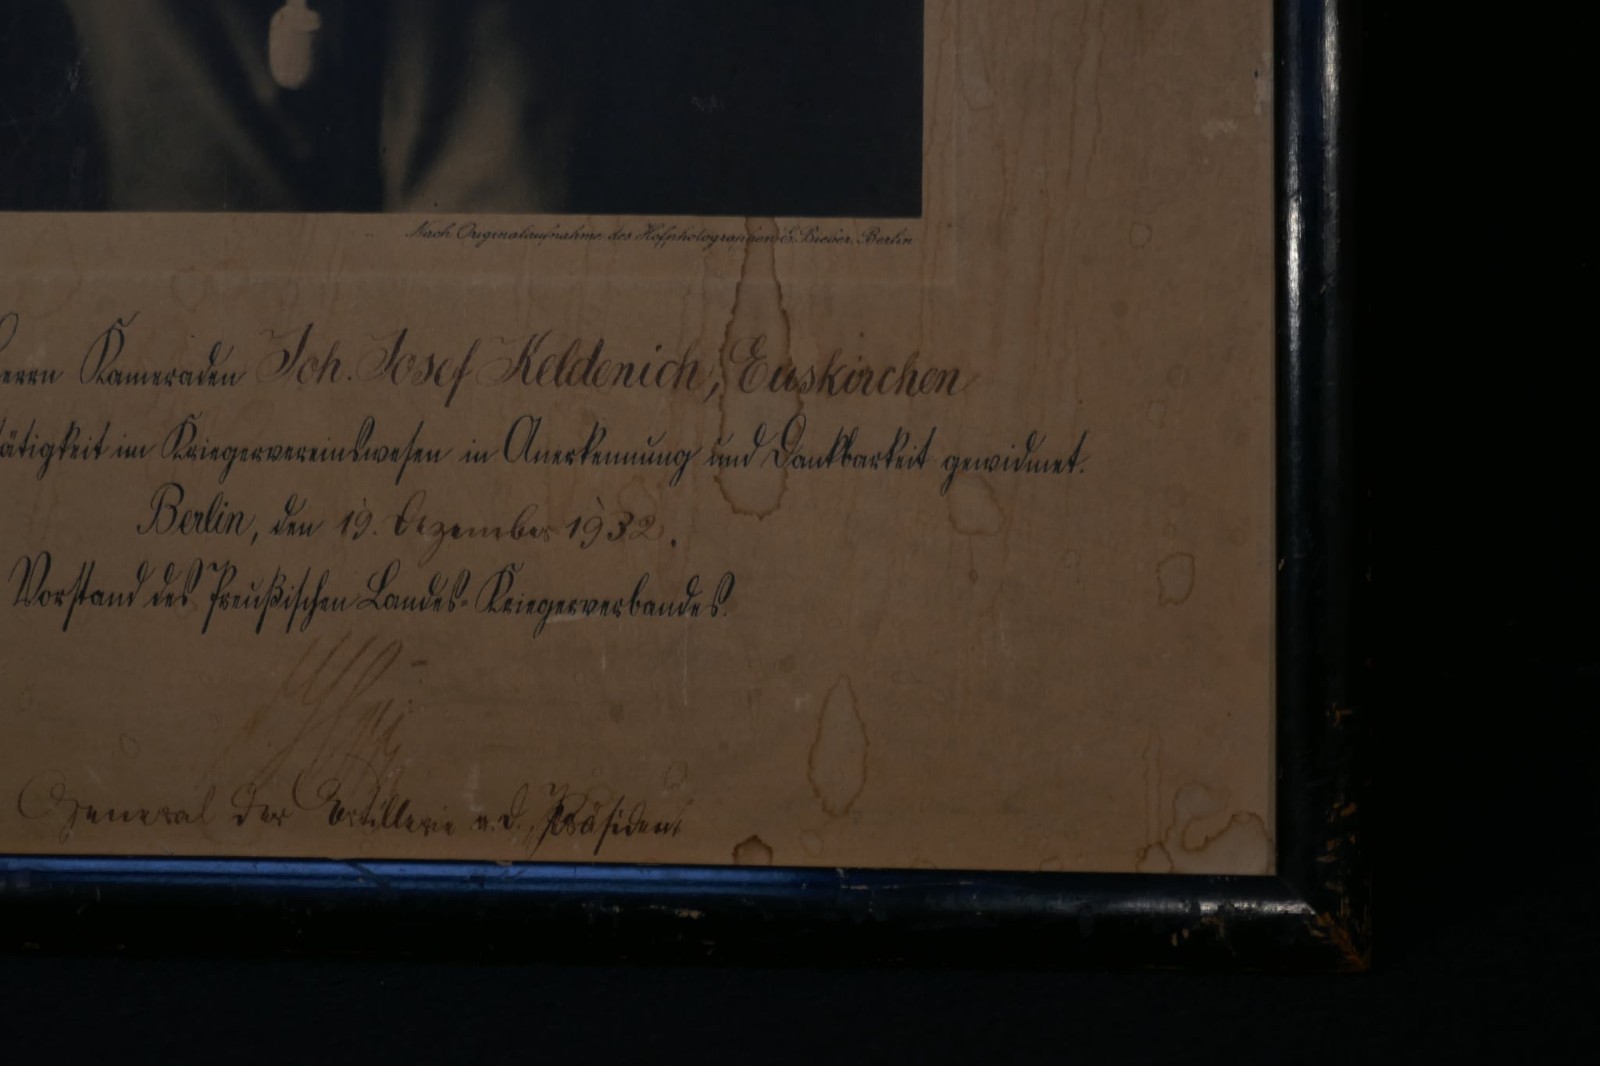 Nach Originalaufnahme des Hofphotographen E. Bieber, Berlin
Herrn Kameraden Joh. Josef Keldenich, Euskirchen
tätigkeit im Kriegervereinswesen in Anerkennung und Dankbarkeit gewidmet.
Berlin, den 19. Dezember 1932.
Vorstand des Preußischen Landes-Kriegerverbandes.
General der Artillerie a.D., Präsident